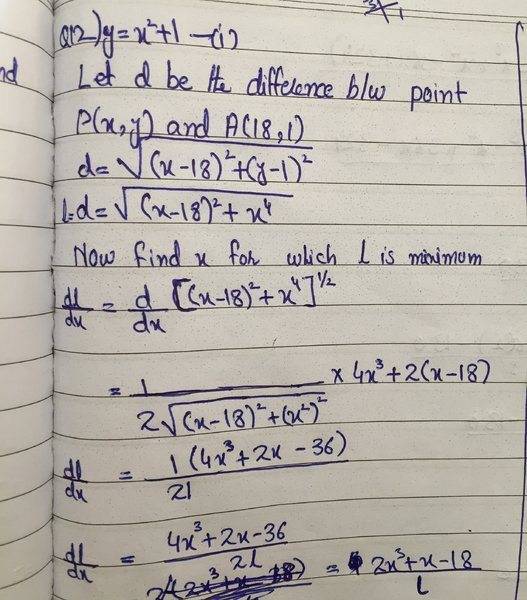 nd
Q12) y = x²+1 —(i)
Let d be the difference b/w point
P(x,y) and A(18,1)
d = √(x-18)²+(y-1)²
l=d = √(x-18)²+x⁴
Now find x for which l is minimum
dl/dx = d/dx [(x-18)²+x⁴]^1/2
= 1/2√(x-18)²+(x²)² × 4x³+2(x-18)
dl/dx = 1(4x³+2x-36)/2l
dl/dx = 4x³+2x-36/2l = 2x³+x-18/l